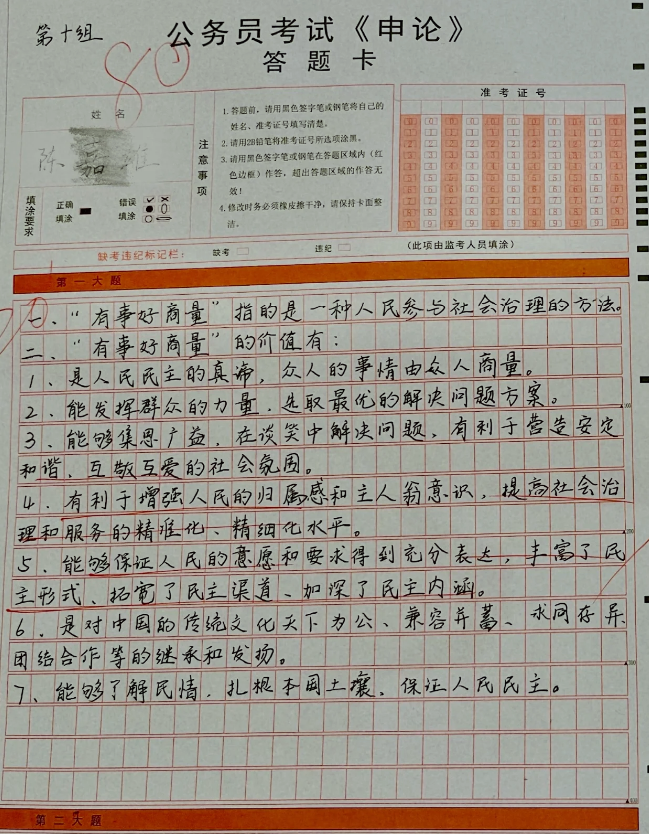 第十组
公务员考试《申论》
答题卡
80
姓名
注意事项
1.答题前，请用黑色签字笔或钢笔将自己的
姓名、准考证号填写清楚。
2.请用2B铅笔将准考证号所选项涂黑。
3.请用黑色签字笔或钢笔在答题区域内（红
色边框）作答，超出答题区域的作答无
效！
4.修改时务必须橡皮擦干净，请保持卡面整
洁。
准考证号
填涂要求
正确
填涂
错误
填涂
缺考违纪标记栏：
缺考
违纪
（此项由监考人员填涂）
第一大题
一、“有事好商量”指的是一种人民参与社会治理的方法。
二、“有事好商量”的价值有：
1、是人民民主的真谛，众人的事情由众人商量。
2、能发挥群众的力量，选取最优的解决问题方案。
3、能够集思广益，在谈笑中解决问题，有利于营造安定
和谐、互敬互爱的社会氛围。
4、有利于增强人民的归属感和主人翁意识，提高社会治
理和服务的精准化、精细化水平。
5、能够保证人民的意愿和要求得到充分表达，丰富了民
主形式、拓宽了民主渠道、加深了民主内涵。
6、是对中国的传统文化天下为公、兼容并蓄、求同存异
团结合作等的继承和发扬。
7、能够了解民情，扎根本国土壤，保证人民民主。
第二大题